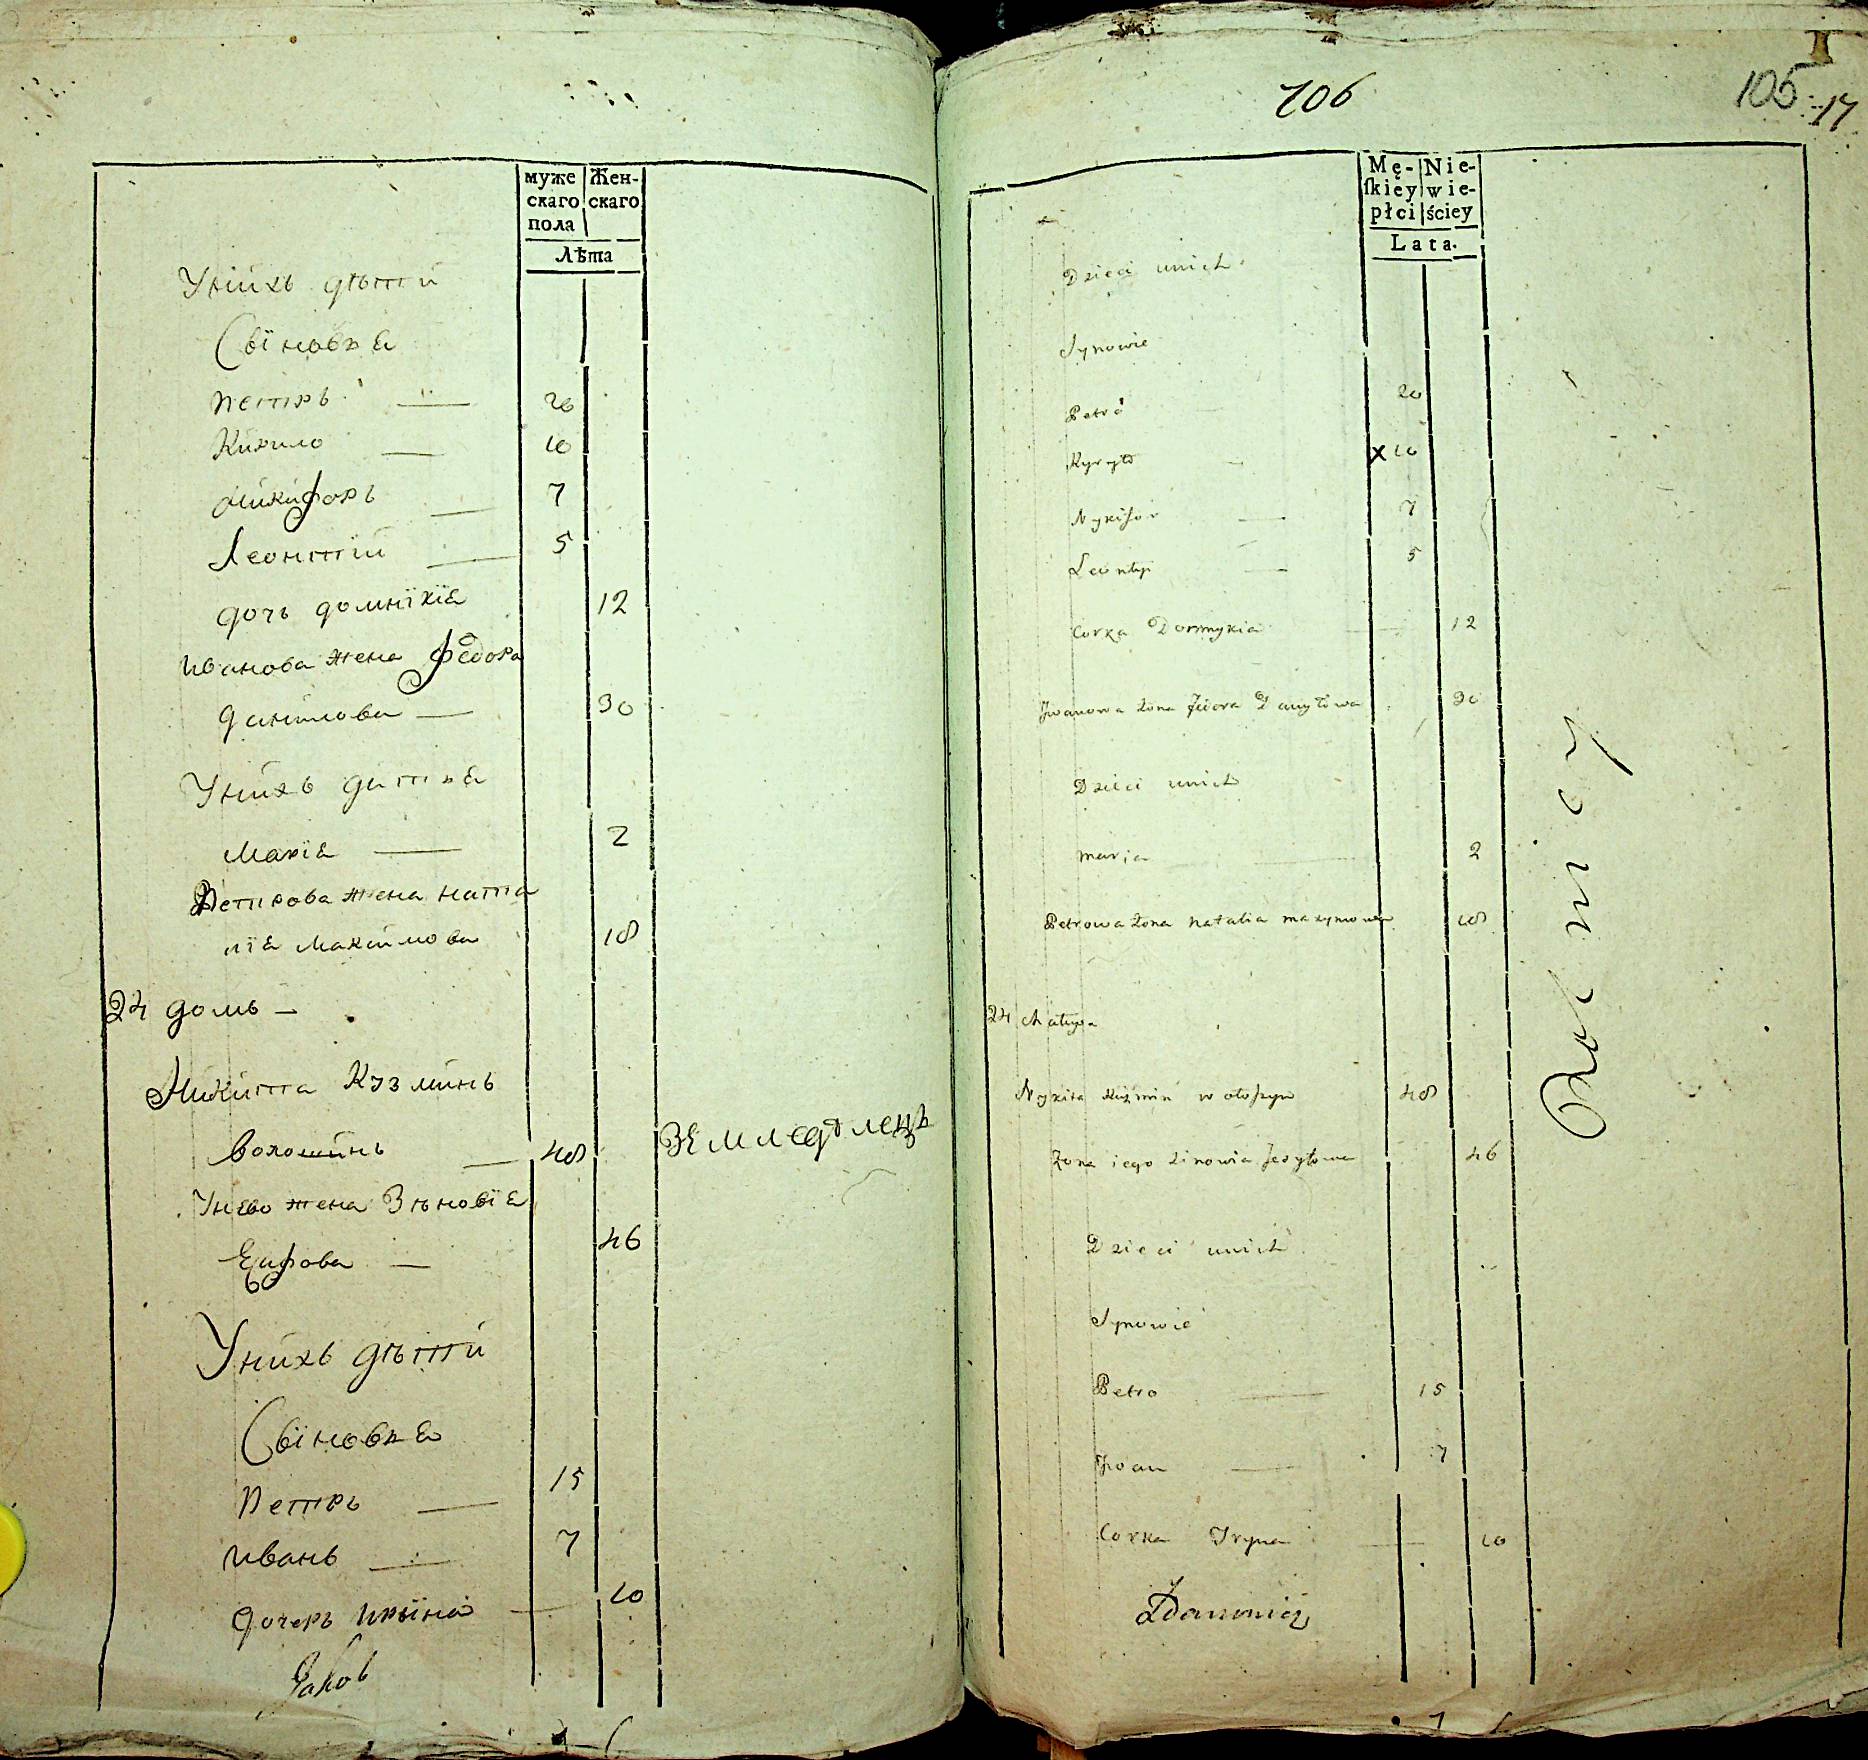 муже
скаго
пола
Жен-
скаго
Лѣта
Унихъ дѣти
Сыновья
Петръ 20
Кирило 10
Микифоръ 7
Леонтій 5
дочь домникія 12
Иванова жена Федора
данилова 30
Унихъ дитя
Марія 2
Петрова жена ната
лія Максимова 18
24 домъ
Никита Кузминъ
волошинъ 48 Земледѣлецъ
Унево жена Зѣновіе
46
Унихъ дѣти
Сыновья
Петръ 15
Иванъ 7
дочеръ Ирына 10
106
105 17
Mę-
ſkiey
płci
Nie-
wie-
ściey
Lata.
Dzieci unich
Synowie
Petro 20
Kyryło x 10
Nykifor 7
Leontyi 5
Corka Domnykia 12
Jwanowa żona Fedora Danyłowa 30
Dzieci unich
Maria 2
Petrowa żona Natalia Maxymowa 18
24 Chałupa
Nykita Kuźmin Wołoszyn 48
Żona iego Zinowia 46
Dzieci unich
Synowie
Petro 15
Jwan 7
Corka Iryna 10
Rolnicy